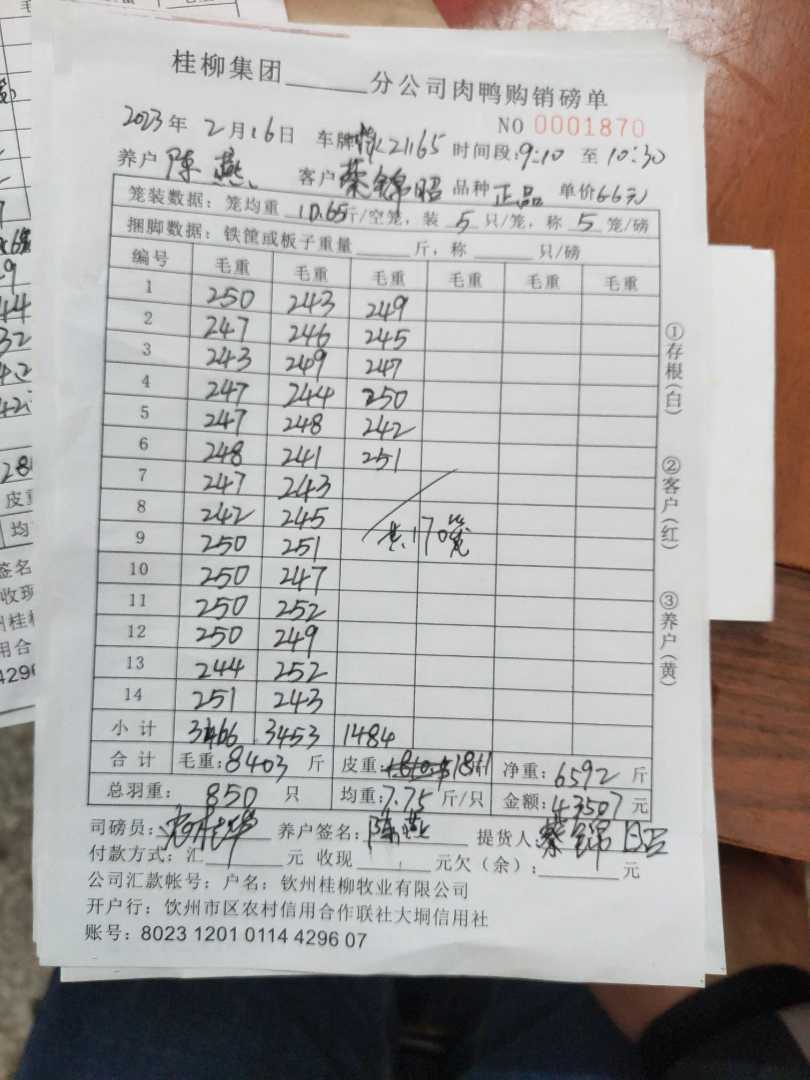 桂柳集团______分公司肉鸭购销磅单
NO 0001870
2023年2月16日 车牌 K21165 时间段:9:10 至 10:30
养户 陈燕 客户 蔡锦昭 品种 正品 单价6.6元
笼装数据：笼均重 10.65斤/空笼，装 5 只/笼，称 5 笼/磅
捆脚数据：铁筐或板子重量______斤，称______只/磅
编号 毛重 毛重 毛重 毛重 毛重 毛重
1 250 243 249
2 247 246 245
3 243 249 247
4 247 244 250
5 247 248 242
6 248 241 251
7 247 243
8 242 245
9 250 251 共170笼
10 250 247
11 250 252
12 250 249
13 244 252
14 251 243
小计 3466 3453 1484
合计 毛重:8403斤 皮重:1811 净重:6592斤
总羽重: 850 只 均重:7.75斤/只 金额:43507元
司磅员: 养户签名:陈燕 提货人:蔡锦昭
付款方式:汇______元 收现______元欠(余):______元
公司汇款帐号：户名：钦州桂柳牧业有限公司
开户行：饮州市区农村信用合作联社大垌信用社
账号：8023 1201 0114 4296 07
①存根(白)
②客户(红)
③养户(黄)